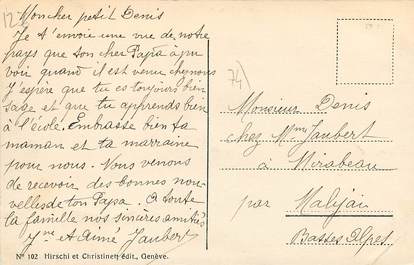 12
Mon cher petit Denis
Je t'envoie une vue de notre
pays que ton cher Papa a pu
voir quand il est venu chez nous
J'espère que tu es toujours bien
sage et que tu apprends bien
à l'école. Embrasse bien ta
maman et ta marraine
pour nous. Nous venons
de recevoir des bonnes nou-
velles de ton Papa. A toute
la famille nos sincères amitiés
et Aimé Jaubert
74)
Monsieur Denis
chez Mme Jaubert
à Mirabeau
par Malijai
Basses Alpes
No 102 Hirschi et Christinet édit., Genève.